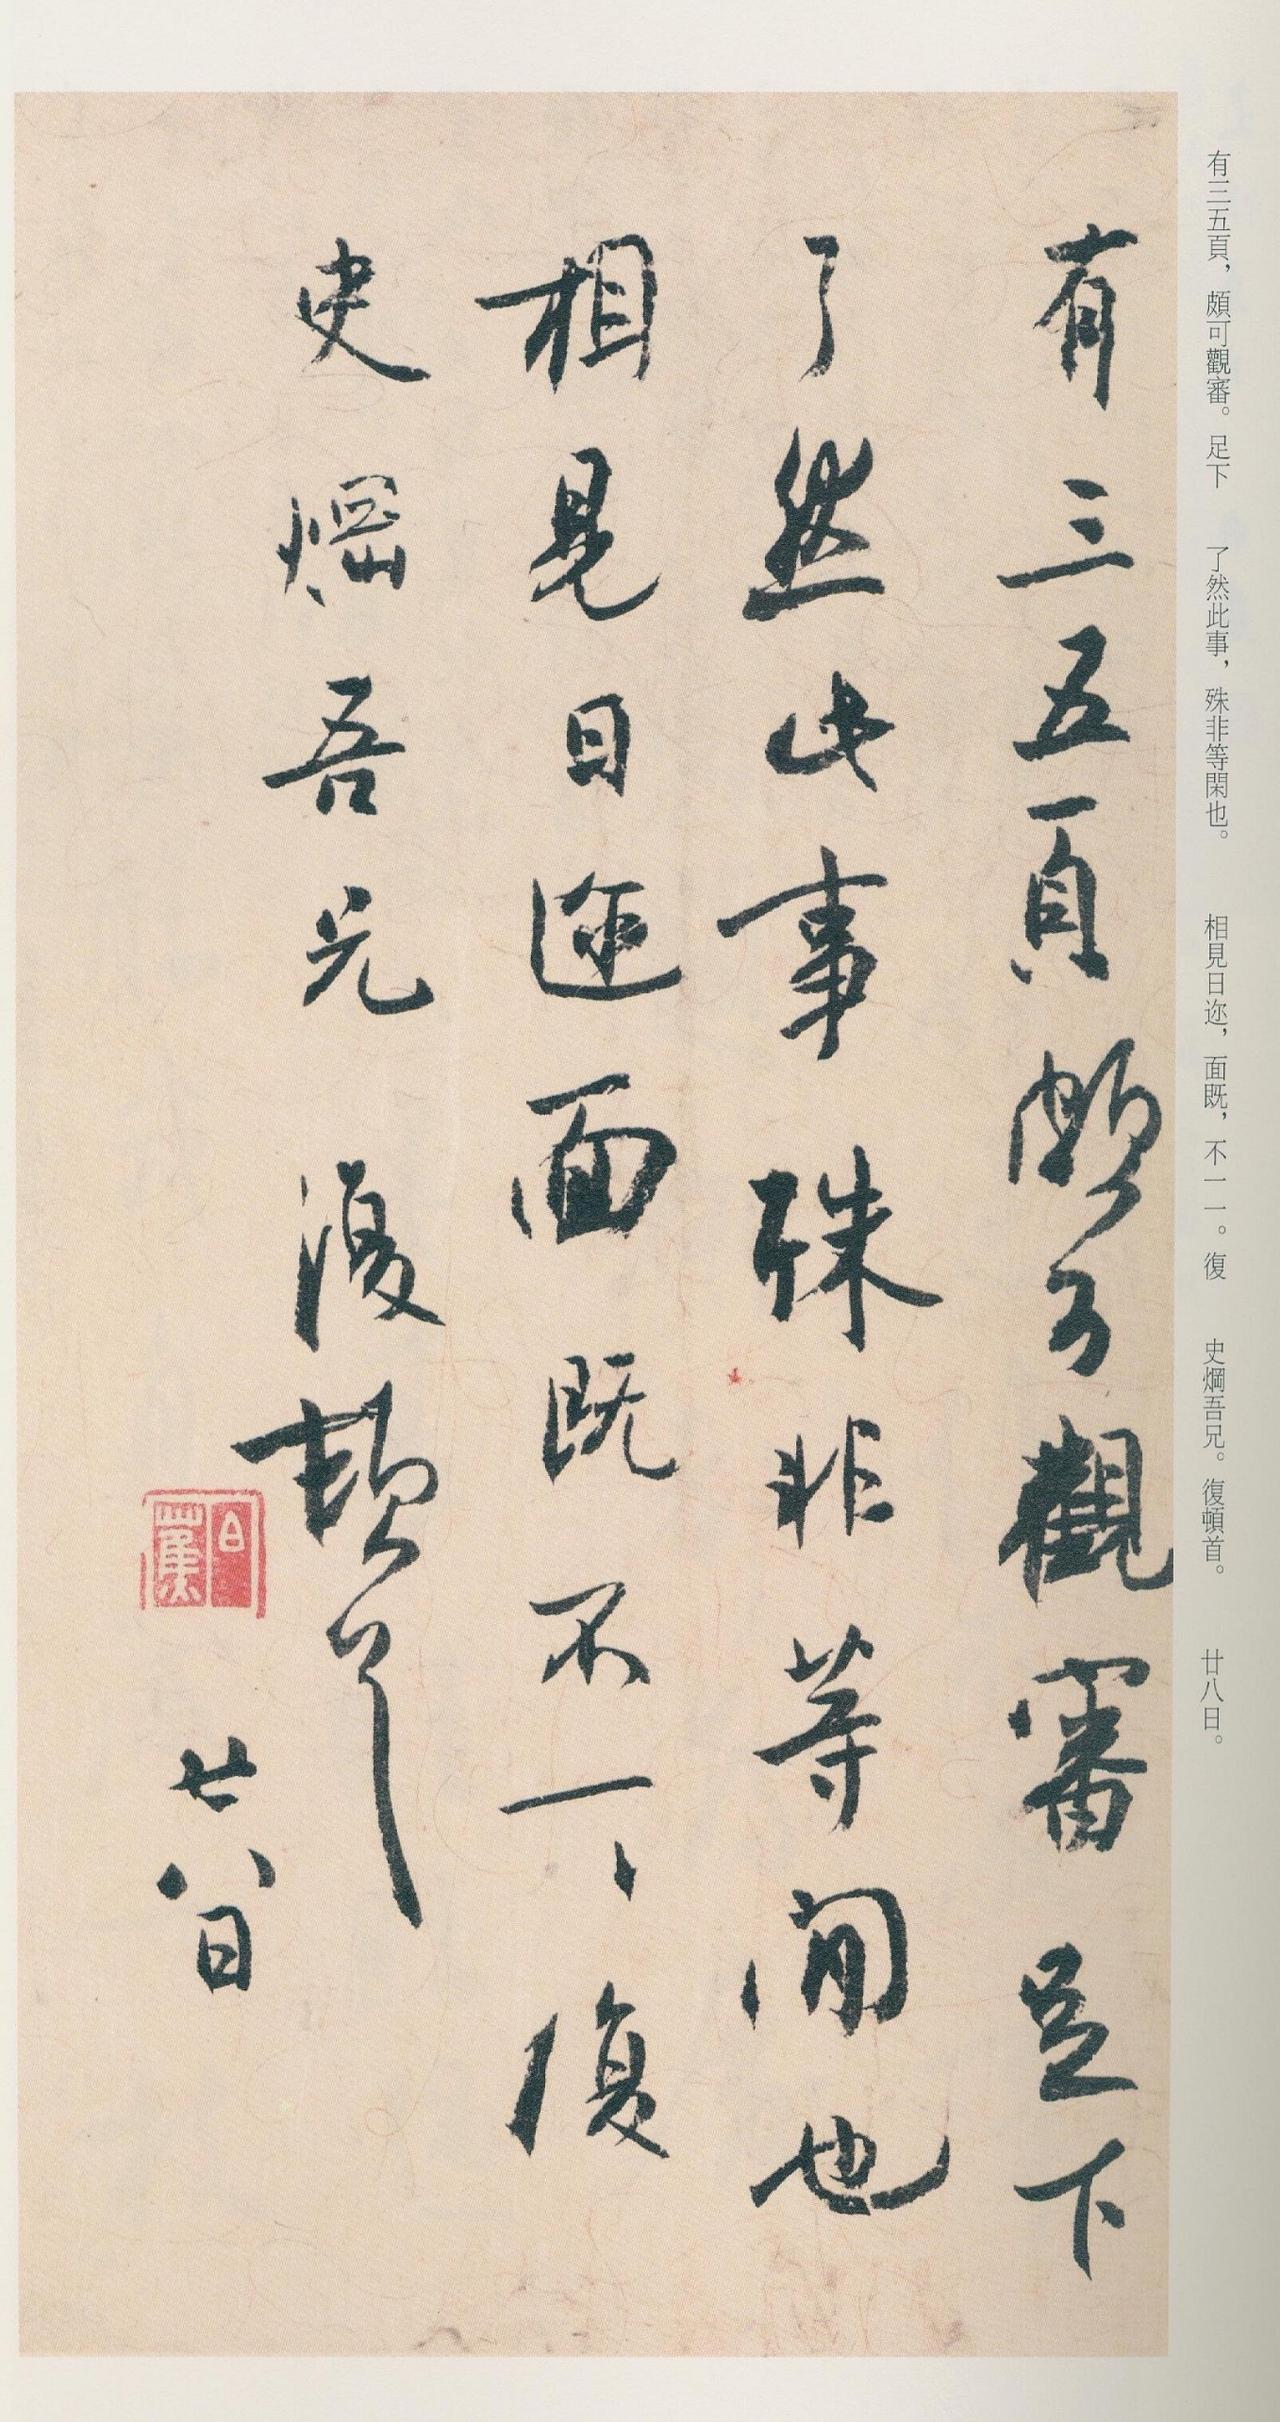 有三五頁，頗可觀審。足下　了然此事，殊非等閑也。　相見日迩，面既，不一一。復　史焵吾兄。復頓首。　廿八日。
有三五頁頗可觀審足下
了然此事殊非等閒也
相見日迩面既不一、復
史焵吾兄復頓首
廿八日